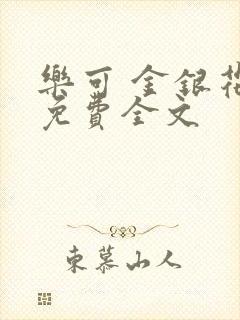 樂可 金銀花
免費全文
東慕山人